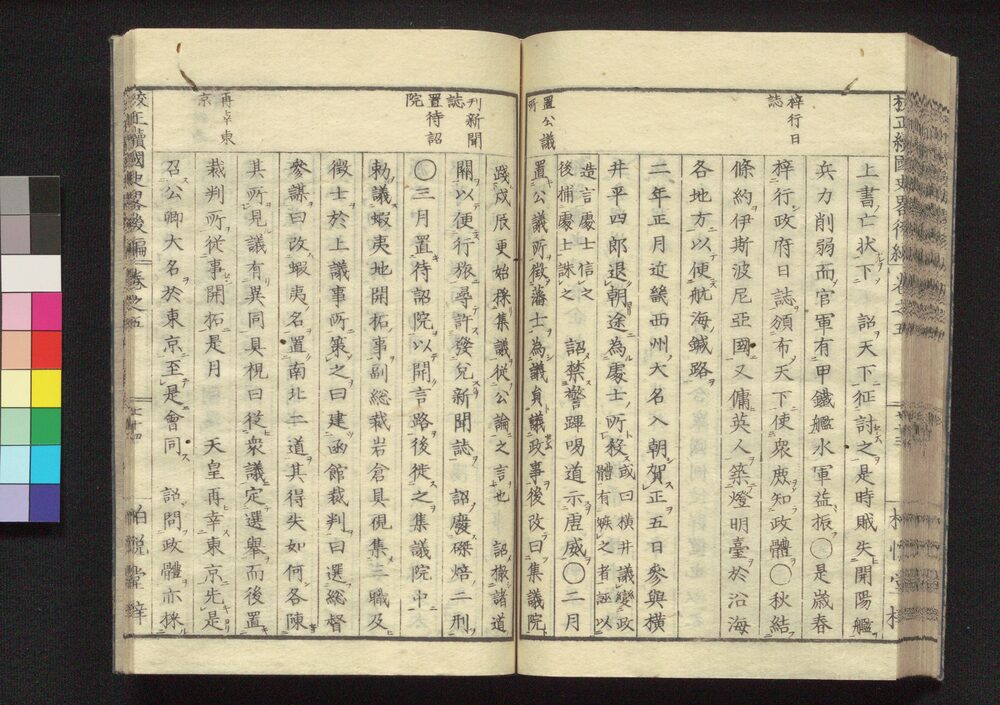 梓行日
誌
置公議
所
上書亡状下 詔天下征討之是時賊失開陽艦
兵力削弱而官軍有甲鐵艦水軍益振〇是歳春
梓行政府日誌頒布天下使衆庶知政體〇秋結
條約伊斯波尼亞國又傭英人築燈明臺於沿海
各地方以便航海鍼路
二年正月近畿西州大名入朝賀正五日參與横
井平四郎退朝途為處士所殺或曰横井議變政
體有嫉之者誣以
造言處士信之
後捕處士誅之 詔禁警蹕喝道示唐威〇二月
置公議所徴藩士為議員議政事後改曰集議院
刊新聞
誌
置待詔
院
再幸東
京
踐戊辰更始採集議從公論之言也 詔撤諸道
關以便行旅尋許發兌新聞誌 詔廢磔焙二刑
〇三月置待詔院以開言路後徙之集議院中
勅議蝦夷地開拓事副總裁岩倉具視集三職及
徴士於上議事所策之曰建函館裁判曰選總督
參謀曰改蝦夷名置南北二道其得失如何各陳
其所見議有異同具視曰從衆議定選舉而後置
裁判所從事開拓是月 天皇再幸東京先是
召公卿大名於東京至是會同 詔問政體亦採
校正續國史畧後編 卷之五 七十四 柏悦堂梓